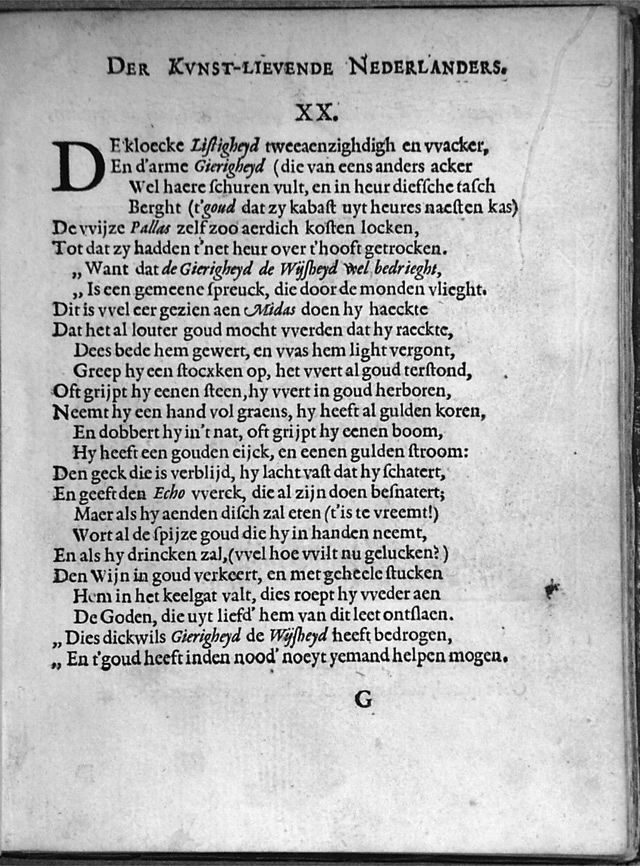 DER KVNST-LIEVENDE NEDERLANDERS.
XX.
DE kloecke Liſtigheyd tweeaenzighdigh en vvacker,
En d'arme Gierigheyd (die van eens anders acker
Wel haere ſchuren vult, en in heur dieſſche taſch
Berght (t'goud dat zy kabaſt uyt heures naeſten kas)
De vvijze Pallas zelf zoo aerdich koſten locken,
Tot dat zy hadden t'net heur over t'hooft getrocken.
„ Want dat de Gierigheyd de Wijſheyd wel bedrieght,
„ Is een gemeene ſpreuck, die door de monden vlieght.
Dit is vvel eer gezien aen Midas doen hy haeckte
Dat het al louter goud mocht vverden dat hy raeckte,
Dees bede hem gewert, en vvas hem light vergont,
Greep hy een ſtocxken op, het vvert al goud terſtond,
Oft grijpt hy eenen ſteen, hy vvert in goud herboren,
Neemt hy een hand vol graens, hy heeft al gulden koren,
En dobbert hy in't nat, oft grijpt hy eenen boom,
Hy heeft een gouden eijck, en eenen gulden ſtroom:
Den geck die is verblijd, hy lacht vaſt dat hy ſchatert,
En geeft den Echo vverck, die al zijn doen beſnatert;
Maer als hy aenden diſch zal eten (t'is te vreemt!)
Wort al de ſpijze goud die hy in handen neemt,
En als hy drincken zal, (vvel hoe vvilt nu gelucken?)
Den Wijn in goud verkeert, en met geheele ſtucken
Hem in het keelgat valt, dies roept hy vveder aen
De Goden, die uyt liefd' hem van dit leet ontſlaen.
„ Dies dickwils Gierigheyd de Wijſheyd heeft bedrogen,
„ En t'goud heeft inden nood' noeyt yemand helpen mogen.
G